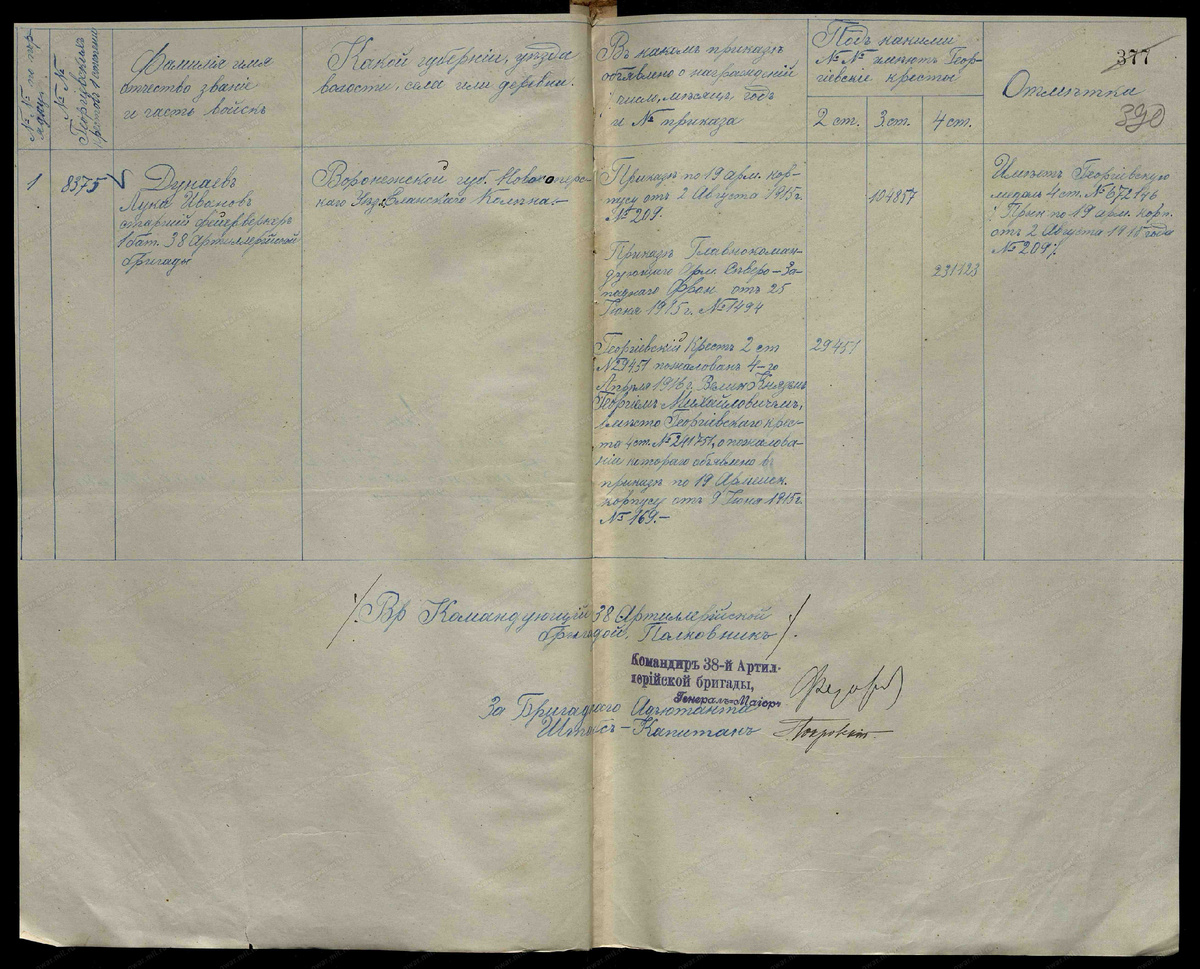 №№ по пор
ядку
№ №
Георгіевскихъ
крестовъ 1 степени
Фамилія имя
отчество званіе
и часть войскъ
Какой губерніи, уѣзда
волости, села или деревни.
Въ какомъ приказѣ
объявлено о награжденіи
число, мѣсяцъ, годъ
и № приказа
Подъ какими
№ № имѣютъ Геор-
гіевскіе кресты
2 ст.
3 ст.
4 ст.
Отмѣтка
377
390
1
8375
Дунаевъ
Лука Ивановъ
старшій фейерверкеръ
1 бат. 38 Артиллерійской
бригады
Воронежской губ. Новохопер-
наго Уѣзд.
Приказъ по 19 арм. кор-
пусу отъ 2 Августа 1915 г.
№ 209.
104957
Приказъ Главнокоман-
дующаго Арм. Сѣверо-За-
паднаго Фрон. отъ 25
Іюня 1915 г. № 1494
231123
Георгіевскій Крестъ 2 ст
№ 29451 пожалованъ 4-го
Апрѣля 1916 г. Велик. Княземъ
Георгіемъ Михайловичемъ,
вмѣсто Георгіевскаго крес-
та 4 ст. № 241751, о пожалова-
ніи котораго объявлено въ
приказѣ по 19 Армейск.
корпусу отъ 9 Іюня 1915 г.
№ 169.-
29451
Имѣетъ Георгіевскую
медаль 4 ст. № 672146
/ Прик по 19 арм. корп.
отъ 2 Августа 1915 года
№ 209/.
/Вр Командующій 38 Артиллерійской
бригадой, Полковникъ/.
Командиръ 38-й Артил-
лерійской бригады,
Генералъ-Маіоръ
За Бригаднаго Адъютанта
Штабсъ-Капитанъ